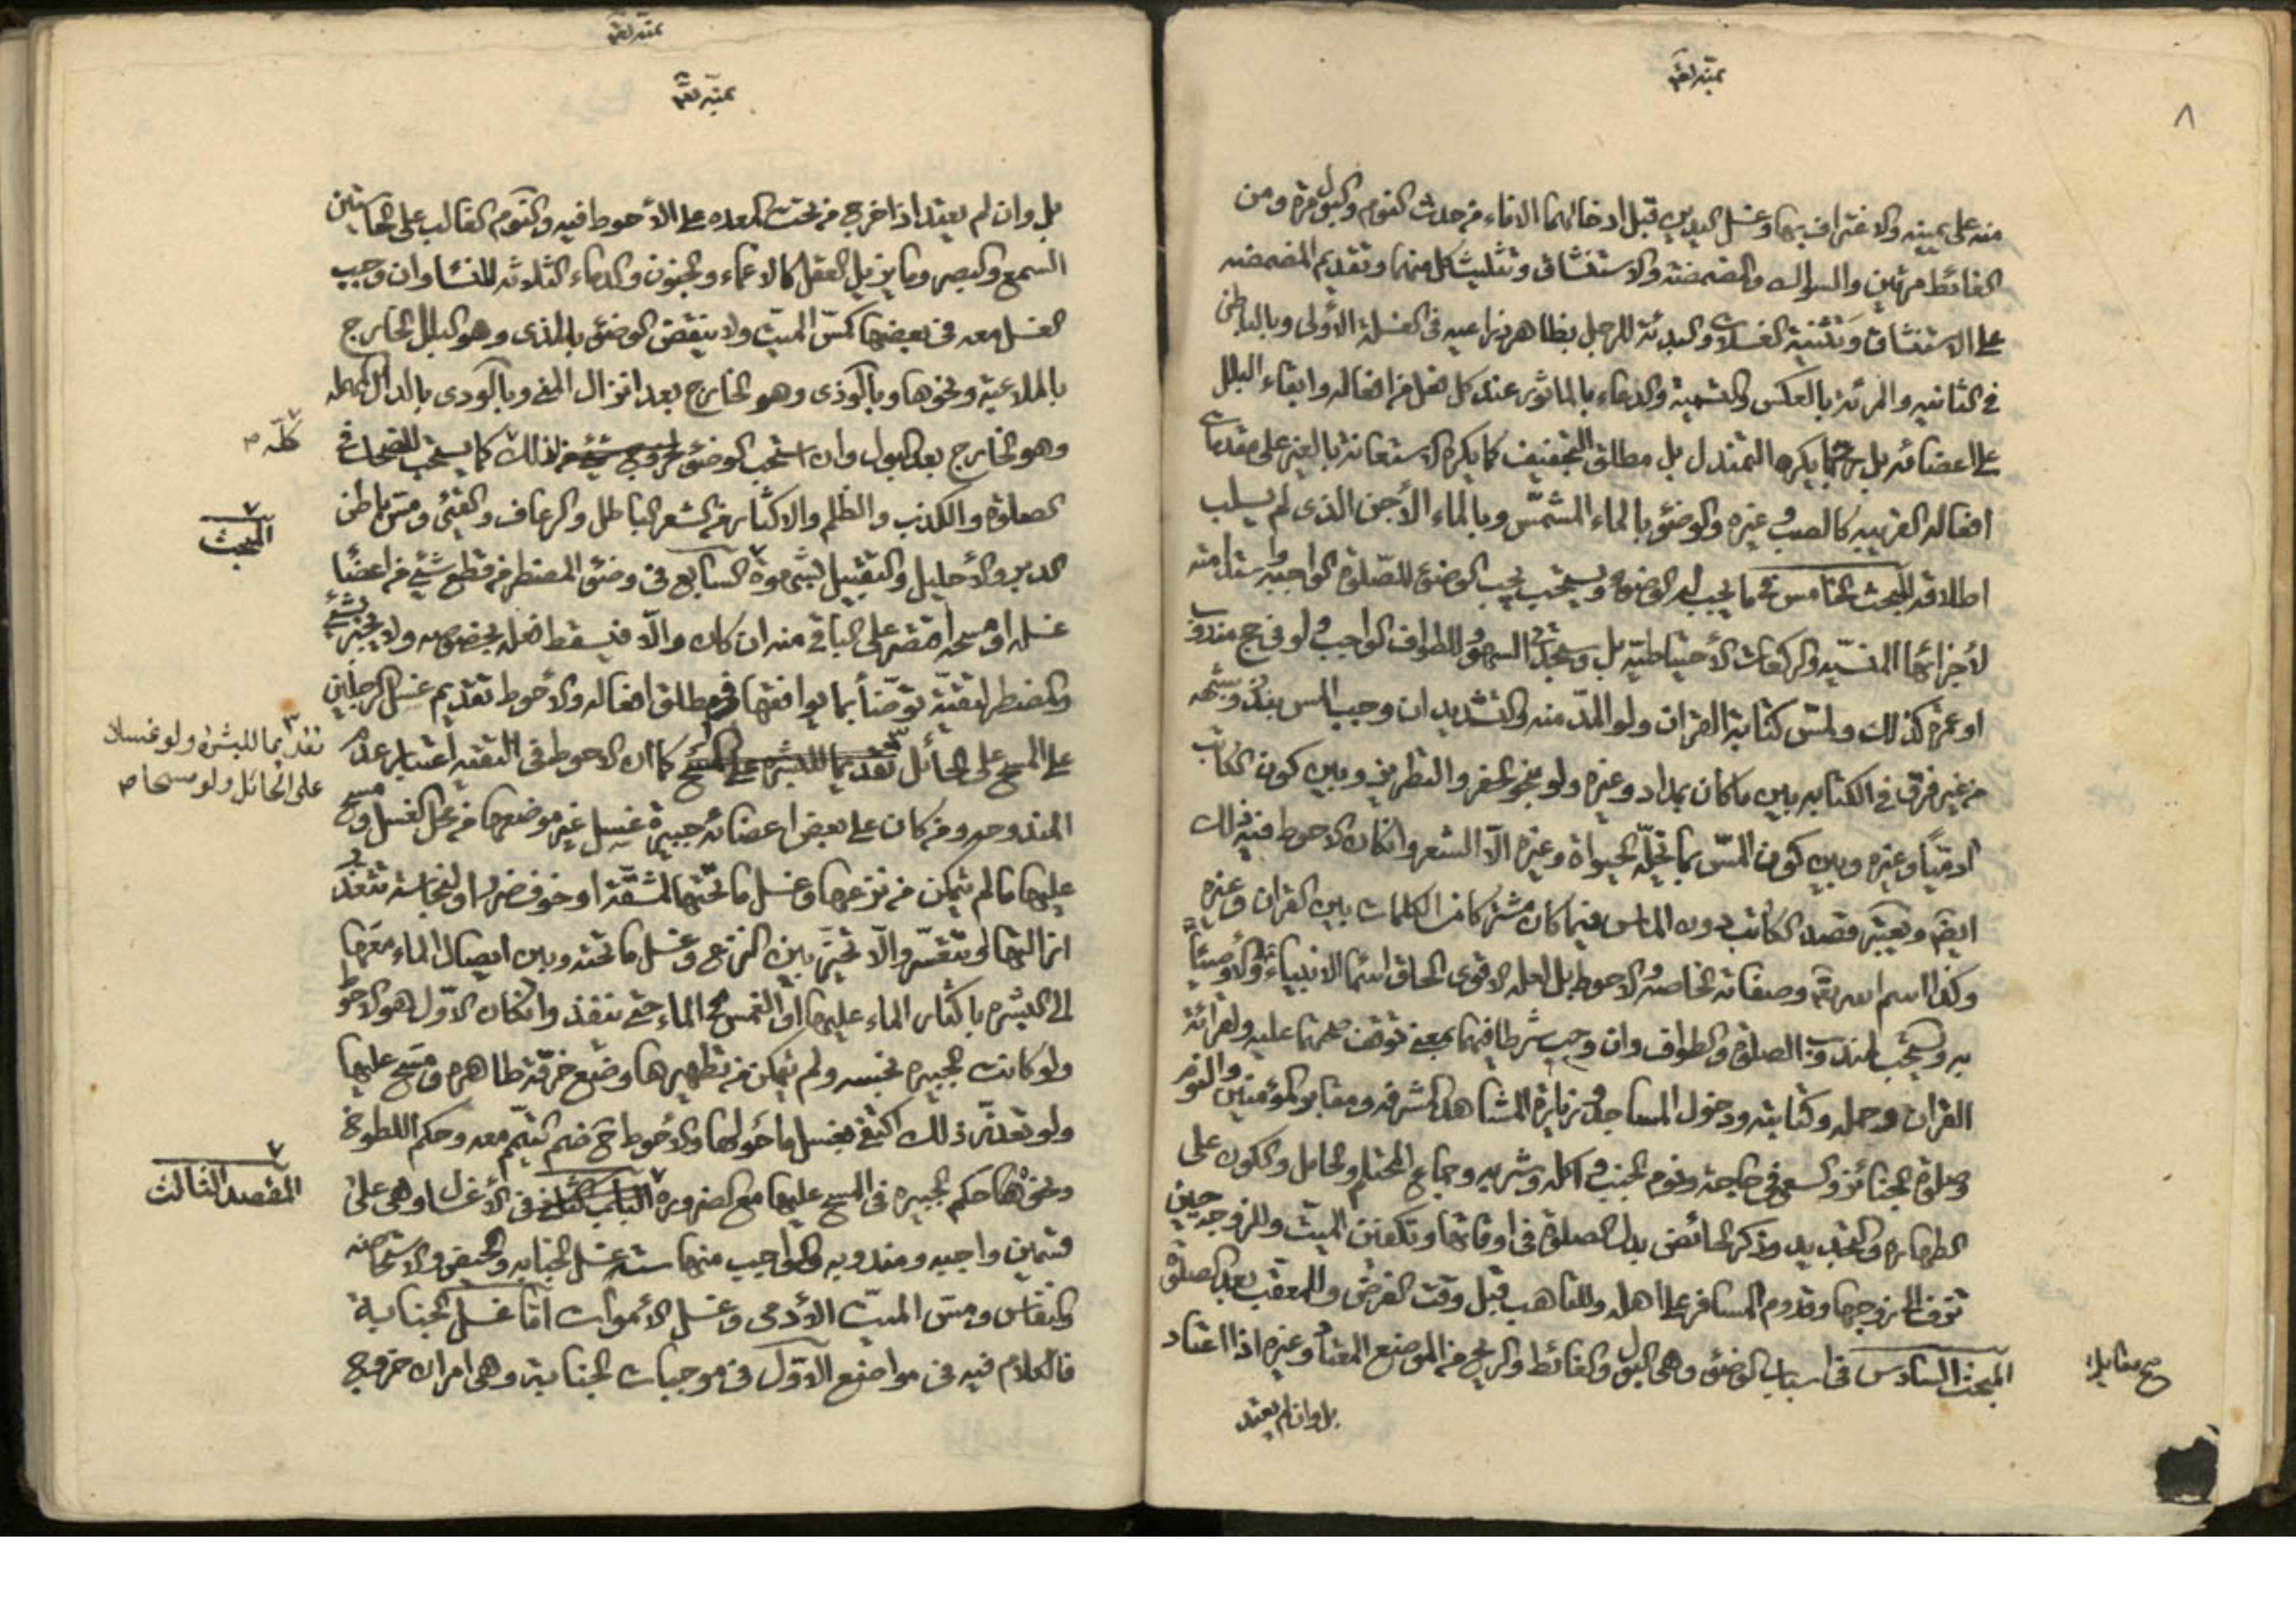 ٨
منه على يمينه والاغتراف بها وغسل اليدين قبل ادخالهما الاناء من حدث النوم والبول مرة ومن
الغائط مرتين والسواك والمضمضة والاستنشاق وتثليث كل منهما وتقديم المضمضه
على الاستنشاق وتثنية الغسلات والبدئة للرجل بظاهر ذراعيه فى الغسلة الأولى وبالباطن
فى الثانيه والمرئة بالعكس والتسمية والدعاء بالماثور عند كل فعل من افعاله وابقاء البلل
على اعضائه بل يكره التمندل بل مطلق التجفيف كما يكره الاستعانة بالغير على مقدمات
افعاله القريبه كالصب وغيره والوضوء بالماء المشمّس وبالماء الأجن الذى لم يسلب
اطلاقه المبحث الخامس فيما يجب له الوضوء ويستحب يجب الوضوء للصّلوة الواجبه
لأجزائها المنسيّه والركعات الأحتياطيّه بل وسجدتى السهو وللطواف الواجب ولو فى حج مندوب
او عمرة كذلك ولمسّ كتابة القران ولو المدّ منه والتشديد ان وجب المس بنذر وشبهه
من غير فرق فى الكتابه بين ما كان بمداد وغيره ولو بنحو الحفر والتطريز وبين كون الكاتب
ادميّاً وغيره وبين كون المسّ بما تحلّه الحيواة وغيره الّا الشعر وانكان الاحوط فيه ذلك
ايضا ويعتبر قصد الكاتب دون الماس فيما كان مشتركا من الكلمات بين القران وغيره
وكذا اسم الله تع وصفاته الخاصه والاحوط بل لعله الاقوى الحاق اسما الانبياء والأوصيا
به ويستحب لمندوب الصلوة والطواف وان وجب شرطا فيهما بمعنى توقف صحتهما عليه ولقرائة
القران وحمله وكتابته ودخول المساجد وزيارة المشاهد المشرفه ومقابر المؤمنين والنوم
وصلوة الجنائز والسعى فى حاجة ونوم الجنب واكله وشربه وجماع المحتلم والحامل والكون على
الطهاره والتجديد وذكر الحائض بدل الصلوة فى اوقاتها وتكفين الميت وللزوجين حين
تزف الى زوجها وقدوم المسافر على اهله وللتاهب قبل وقت الفرض وللمعقب بعد الصلوة
المبحث السادس فى اسباب الوضوء وهى البول والغائط والريح من الموضع المعتاد وغيره اذا اعتاد
بل وان لم يعتد
بل وان لم يعتد اذا خرج من تحت المعده على الأحوط فيه والنوم الغالب على الحاستين
السمع والبصر وما يزيل العقل كالاغماء والجنون والدماء الثلاثه للنسا وان وجب
الغسل معه فى بعضها كمسّ الميّت ولا ينقض الوضوء بالمذى وهو البلل الخارج
بالملاعبة ونحوها وبالوذى وهو الخارج بعد انزال المنى وبالودى بالدال المهمله
وهو الخارج بعد البول وان استحب الوضوء لخروج شئ من ذلك كما يستحب للضحك فى
كلّه
الصلوة والكذب والظلم والاكثار من الشعر الباطل والرعاف والقيئ ومس باطن
المبحث
الدبر والأحليل والتقبيل بشهوة السابع فى وضوء المضطر من قطع شئ من اعضا
غسله او مسحه اقتصر على الباقى منه ان كان والّا فيسقط فعله بخصوصه ولا يجتزئ
والمضطر لتقيّة توضّأ بما يوافقها فى مطلق افعاله والأحوط تقديم غسل الرجلين
على المسح على الحائل تقديما للبشره على المسح كما ان الاحوط فى التقيه اعتبار عدم
تقديما للبشرة ولو غسلا
على الحائل ولو مسحا
المندوحه ومن كان على بعض اعضائه جبيرة غسل غير موضعها من محل الغسل ومسح
عليها ما لم يتمكن من نزعها وغسل ما تحتها لمشقّة او خوف ضرر او لنجاسة تتعذر
ازالتها او تتعسّر والّا تخير بين النزع وغسل ما تحته وبين ايصال الماء معها
الى البشره باكثار الماء عليها او الغمس فى الماء حتى ينفذ وانكان الاوّل هو الاحوط
ولو كانت الجبيره نجسه ولم يتمكن من تطهيرها وضع خرقة طاهره ومسح عليها
ولو تعذّر ذلك اكتفى بغسل ما حولها والأحوط ح ضم التيمّم معه وحكم اللطوخ
ونحوها حكم الجبيره فى المسح عليها مع الضروره الباب الثانى فى الأغسال وهى على
المقصد الثالث
قسمين واجبه ومندوبه والواجب منها سته غسل الجنابه والحيض والاستحاضه
والنفاس ومس الميت الأدمى وغسل الأموات امّا غسل الجنابة
فالكلام فيه فى مواضع الاوّل فى موجبات الجنابة وهى امران خروج